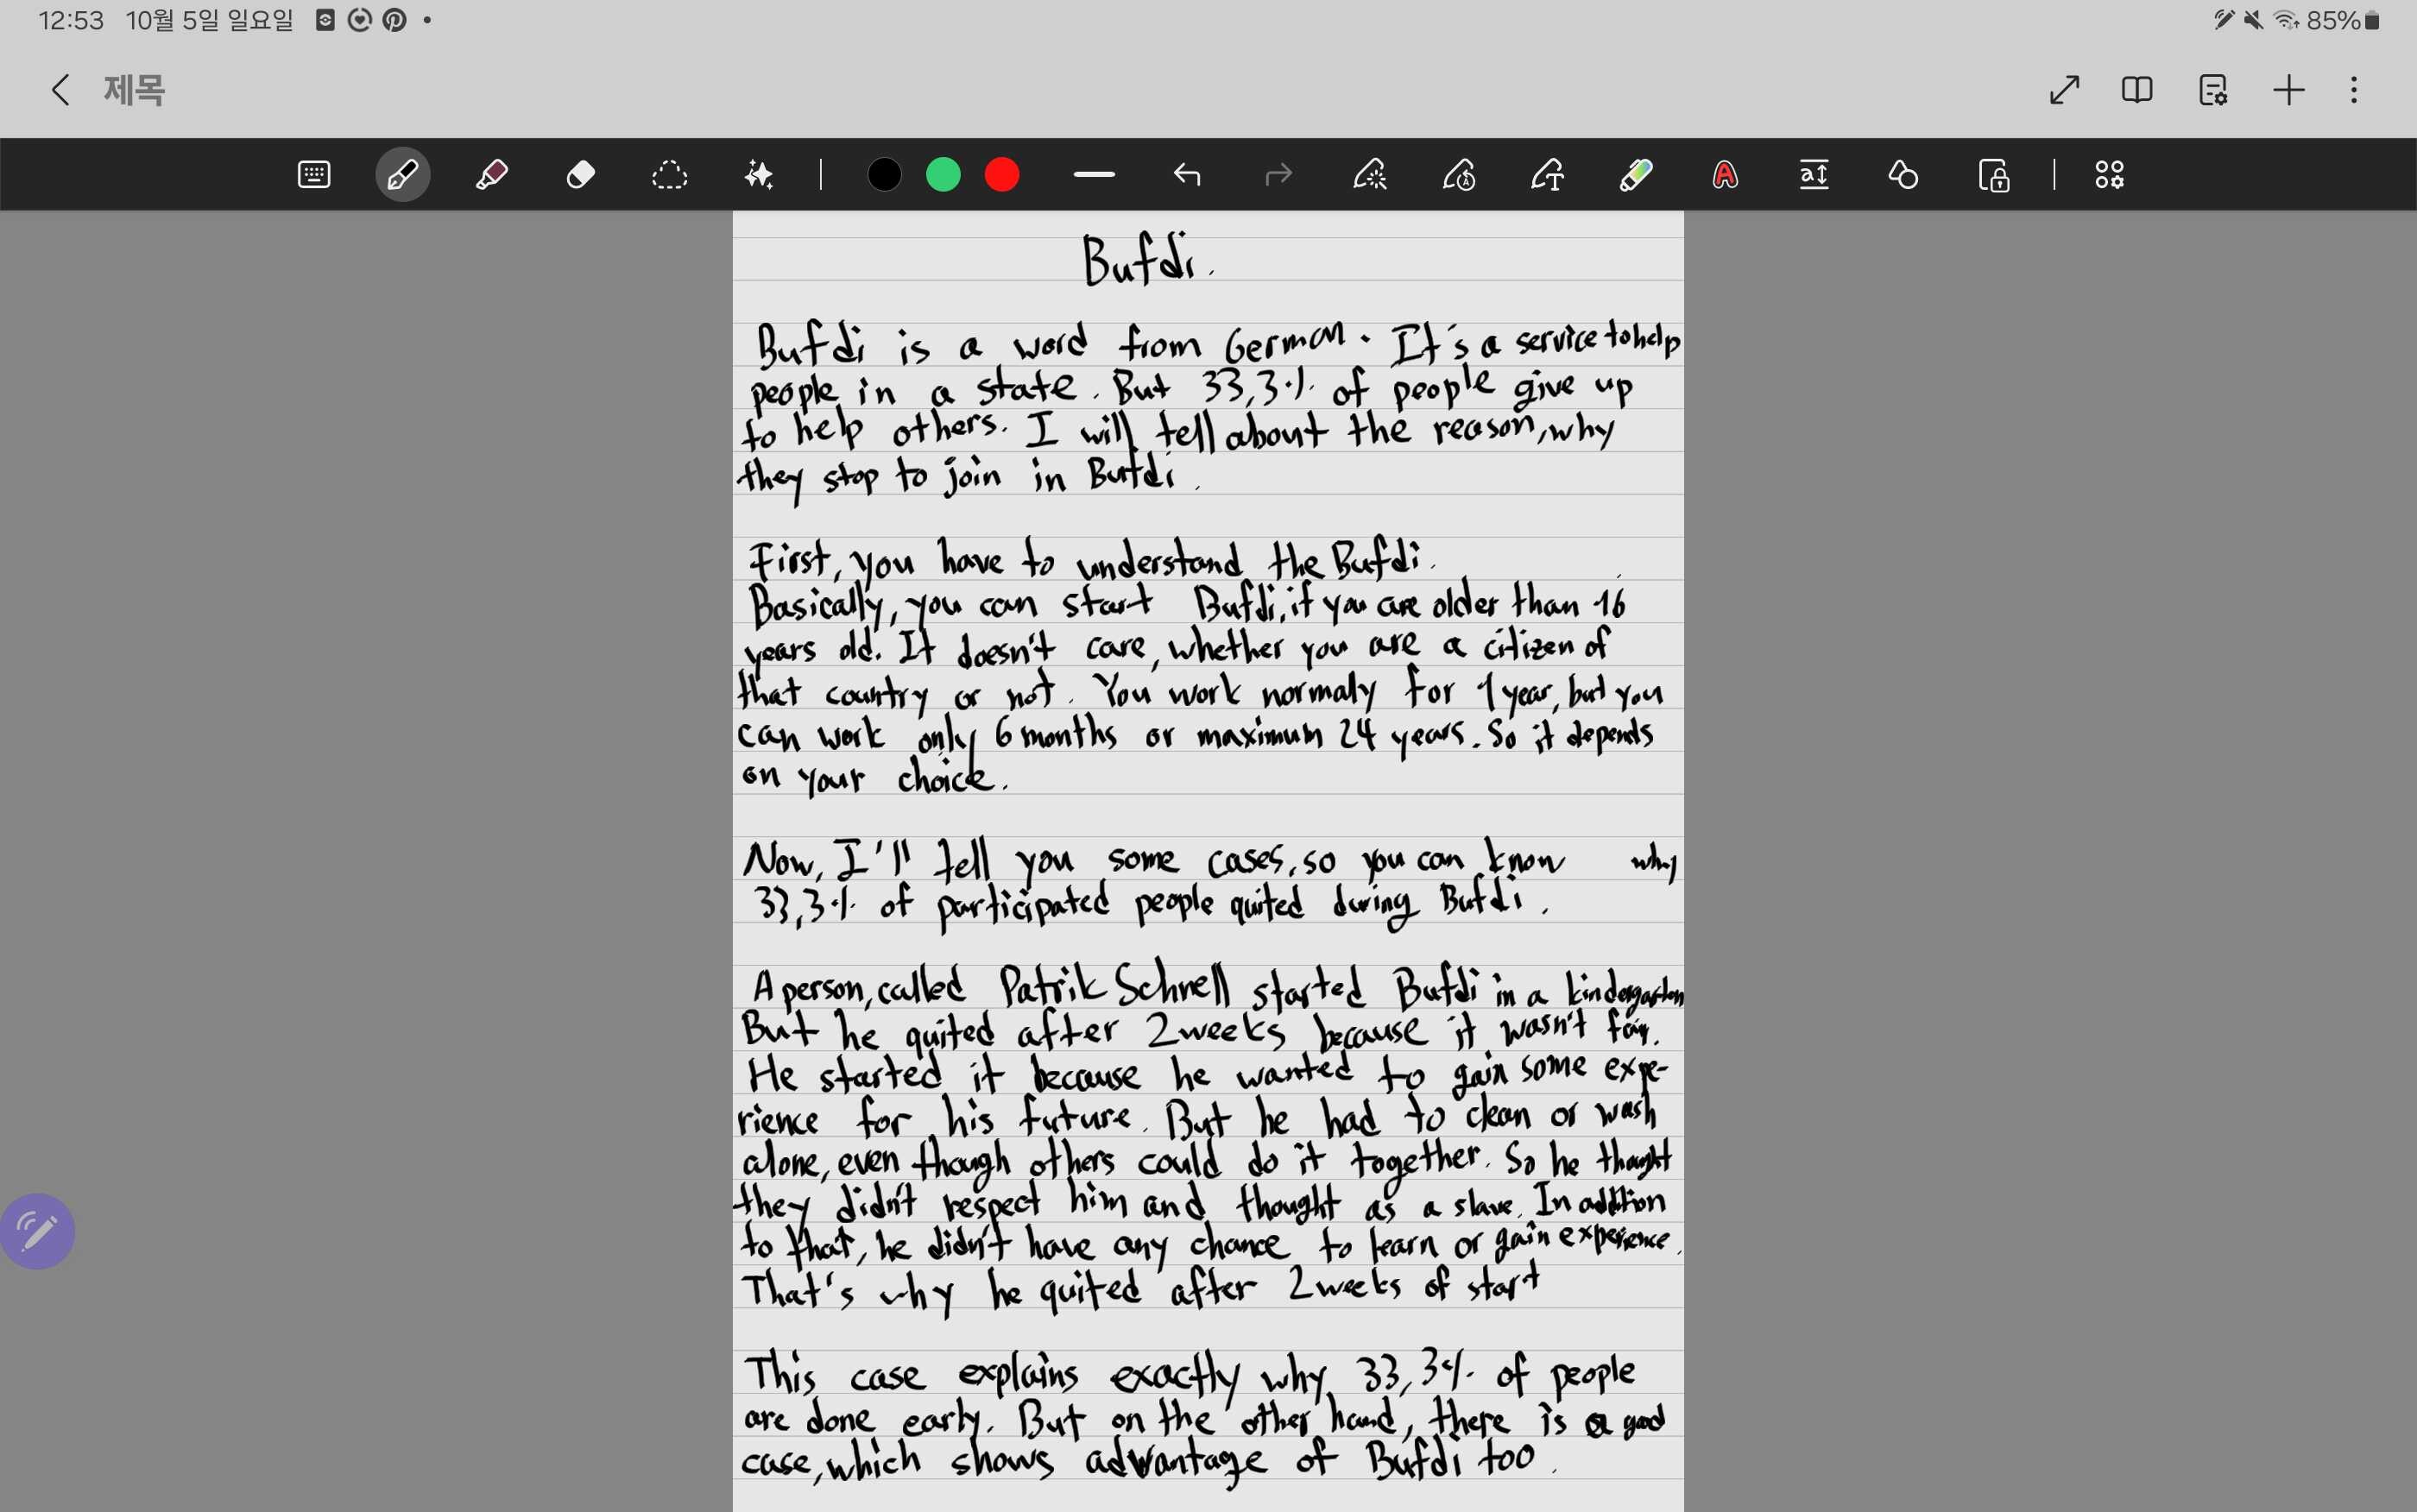 12:53 10월 5일 일요일
85%
제목
Bufdi.
Bufdi is a word from German. It's a service to help
people in a state. But 33,3% of people give up
to help others. I will tell about the reason, why
they stop to join in Bufdi.
First, you have to understand the Bufdi.
Basically, you can start Bufdi, if you are older than 16
years old. It doesn't care, whether you are a citizen of
that country or not. You work normaly for 1 year, but you
can work only 6 months or maximum 24 years. So it depends
on your choice.
Now, I'll tell you some cases, so you can know why
33,3% of participated people quited during Bufdi.
A person, called Patrik Schnell started Bufdi in a kindergarten
But he quited after 2 weeks because it wasn't fair.
He started it because he wanted to gain some expe-
rience for his future. But he had to clean or wash
alone, even though others could do it together. So he thought
they didn't respect him and thought as a slave. In addition
to that, he didn't have any chance to learn or gain experience.
That's why he quited after 2 weeks of start
This case explains exactly why 33,3% of people
are done early. But on the other hand, there is a good
case, which shows advantage of Bufdi too.